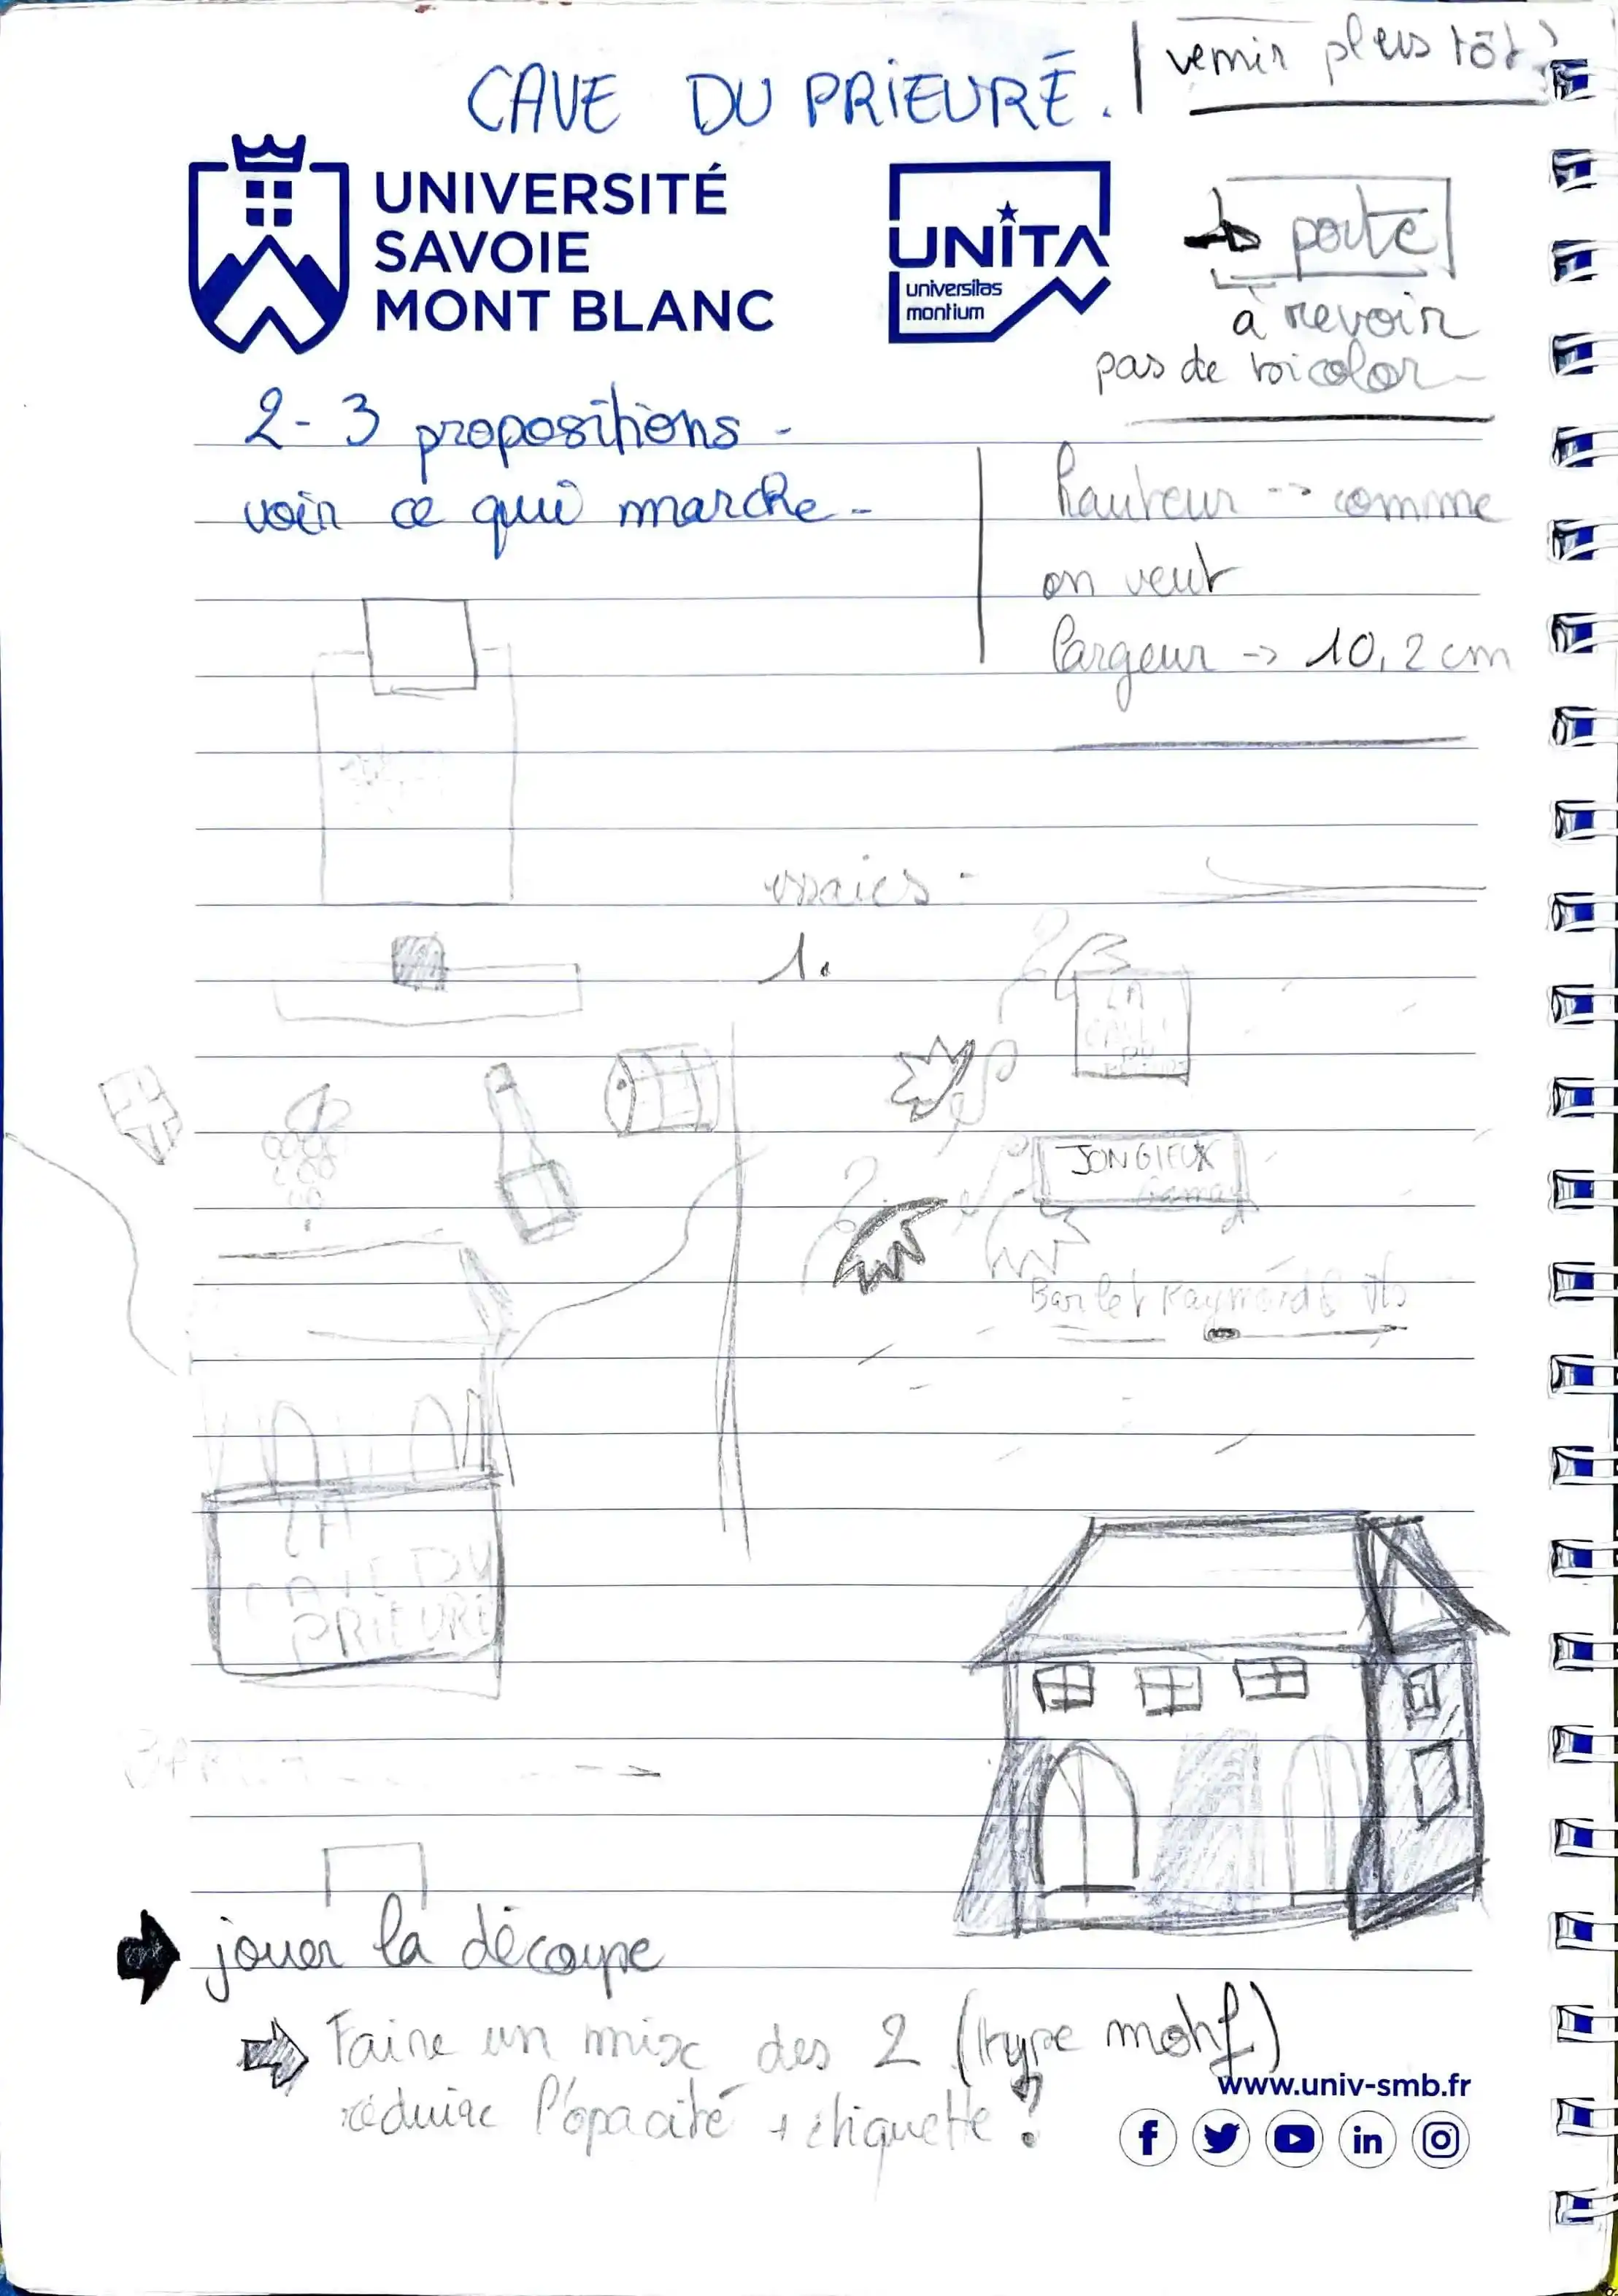 CAVE DU PRIEURÉ.
venir plus tôt!
UNIVERSITÉ
SAVOIE
MONT BLANC
UNITA
universitas
montium
porte
à revoir
pas de tricolor
2-3 propositions -
voir ce qui marche -
hauteur -> comme
on veut
largeur -> 10,2 cm
essaies -
1.
LA
CAVE
DU
PRIEURÉ
JONGIEUX
Gamay
Barlet Raymond & fils
LA
CAVE DU
PRIEURÉ
jouer la découpe
Faire un mix des 2 (type motif)
réduire l'opacité + étiquette ?
www.univ-smb.fr